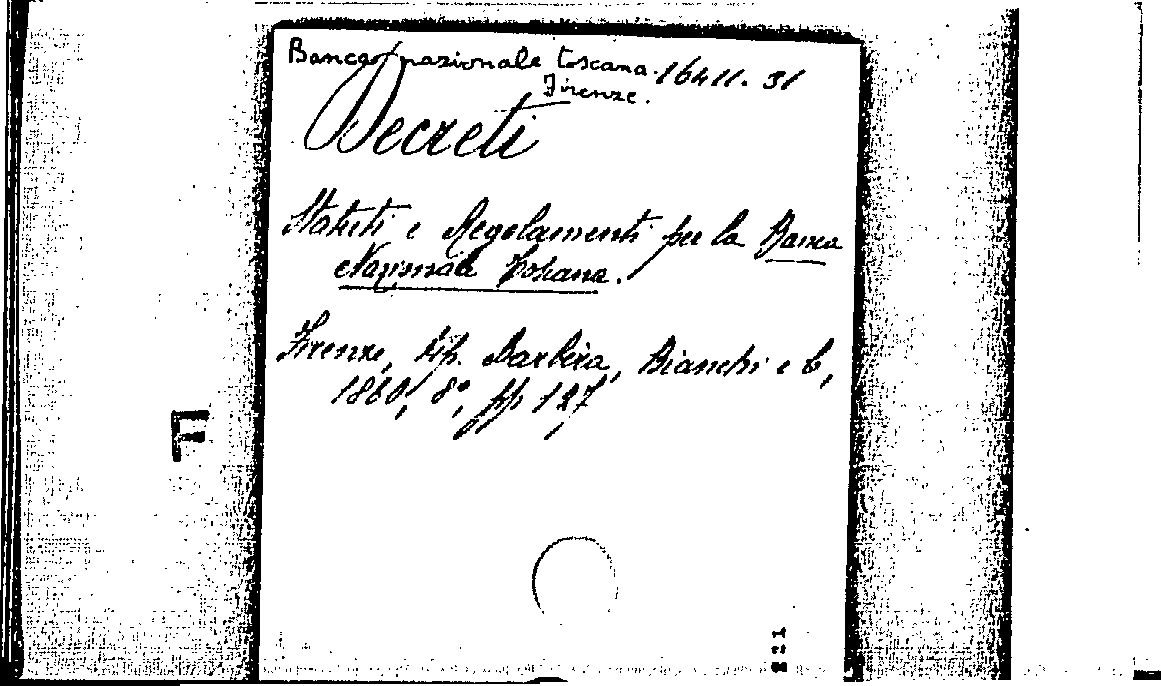 Banca nazionale toscana. 16411. 31
Firenze.
Decreti
Statuti e Regolamenti per la Banca
Nazionale Toscana.
Firenze, tip. Barbèra, Bianchi e C,
1860, 8°, pp 127
F